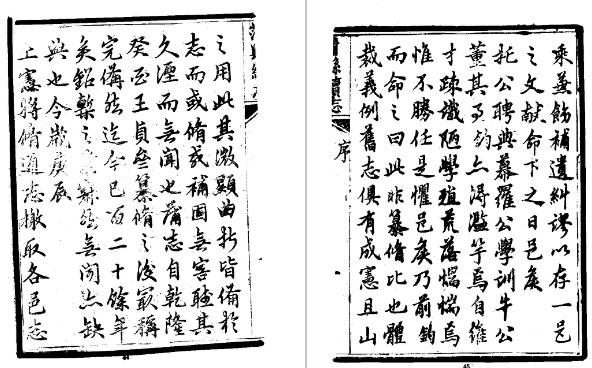 之用此其微顯曲折皆備於
志而或脩或補固無害聽其
久湮而無聞也蒲志自乾隆
癸酉王貞壑纂脩之後最稱
完備然迄今已百二十餘年
矣鉛槧之無聞亦缺
典也今歲庚辰
上憲將脩通志檄取各邑志
44
乘並飭補遺糾謬以存一邑
之文獻命下之日邑侯
托公聘典幕羅公學訓牛公
董其事鈞亦得濫竽焉自維
才疎識陋學殖荒落惴惴焉
惟不勝任是懼邑侯乃前鈞
而命之曰此非纂脩比也體
裁義例舊志俱有成憲且山
序
45